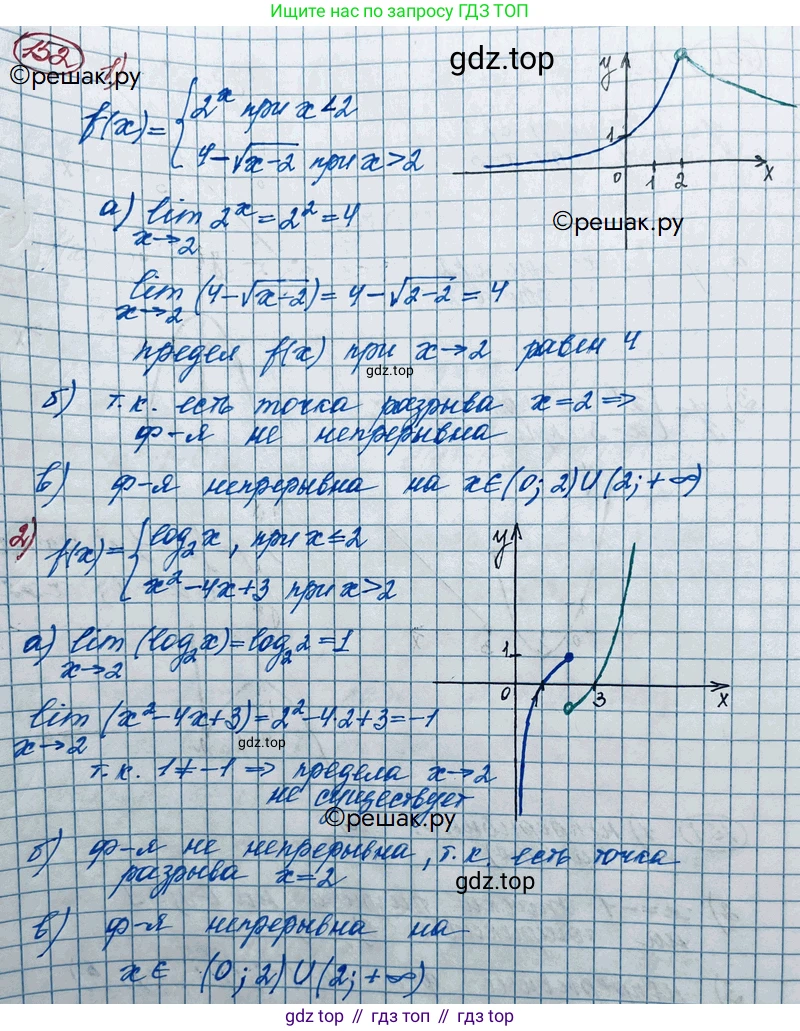 Ищите нас по запросу ГДЗ ТОП
152
©решак.ру
1)
gdz.top
y
f(x)= { 2^x при x<2
4-√x-2 при x>2
1
0 1 2 x
©решак.ру
а) lim 2^x = 2^2 = 4
x→2
lim (4-√x-2) = 4-√2-2 = 4
x→2
предел f(x) при x→2 равен 4
gdz.top
б) т.к. есть точка разрыва x=2 ⇒
ф-я не непрерывна
в) ф-я непрерывна на x∈(0; 2)∪(2; +∞)
2)
f(x)= { log₂x, при x≤2
x²-4x+3 при x>2
y
1
0 1 3 x
а) lim (log₂x)=log₂2=1
x→2
lim (x²-4x+3)=2²-4·2+3=-1
x→2
gdz.top
т.к. 1≠-1 ⇒ предела x→2
не существует
©решак.ру
б) ф-я не непрерывна, т.к. есть точка
разрыва x=2
gdz.top
в) ф-я непрерывна на
x∈ (0; 2)∪(2; +∞)
gdz.top // гдз.топ // gdz.top // гдз.топ